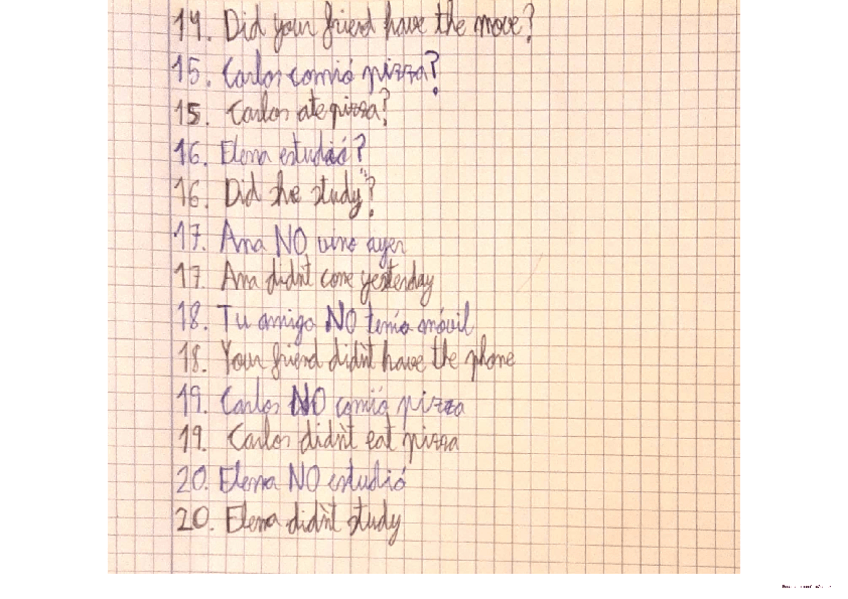 14. Did your friend have the move?
15. Carlos comió pizza?
15. Carlos ate pizza?
16. Elena estudió?
16. Did she study"?
17. Ana NO vino ayer
17. Ana didn't come yesterday
18. Tu amigo NO tenía móvil
18. Your friend didn't have the phone
19. Carlos NO comió pizza
19. Carlos didn't eat pizza
20. Elena NO estudió
20. Elena didn't study